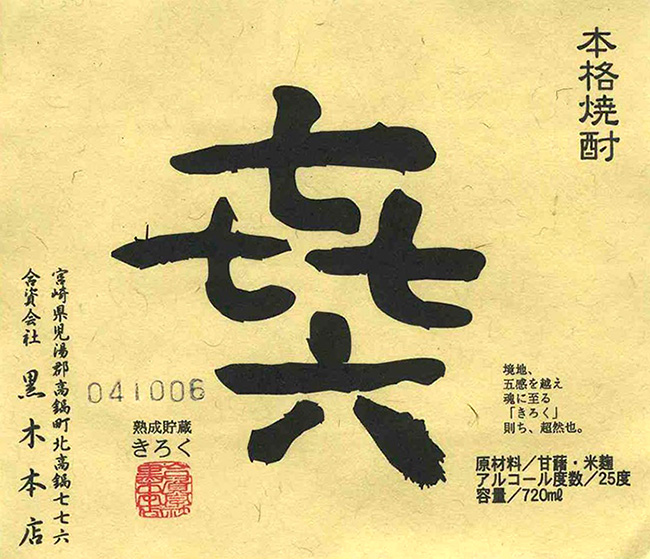 本格焼酎
㐂六
境地、
五感を越え
魂に至る
「きろく」
則ち、超然也。
原材料／甘藷・米麹
アルコール度数／25度
容量／720mℓ
041006
熟成貯蔵
きろく
宮崎県児湯郡高鍋町北高鍋七七六
合資会社 黒木本店